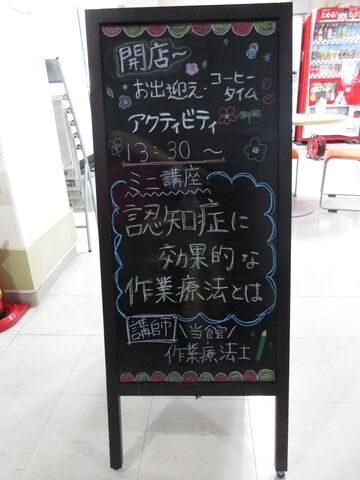 開店～
お出迎え・コーヒータイム
アクティビティ
13:30～
ミニ講座
認知症に
効果的な
作業療法とは
講師
\当館/
作業療法士